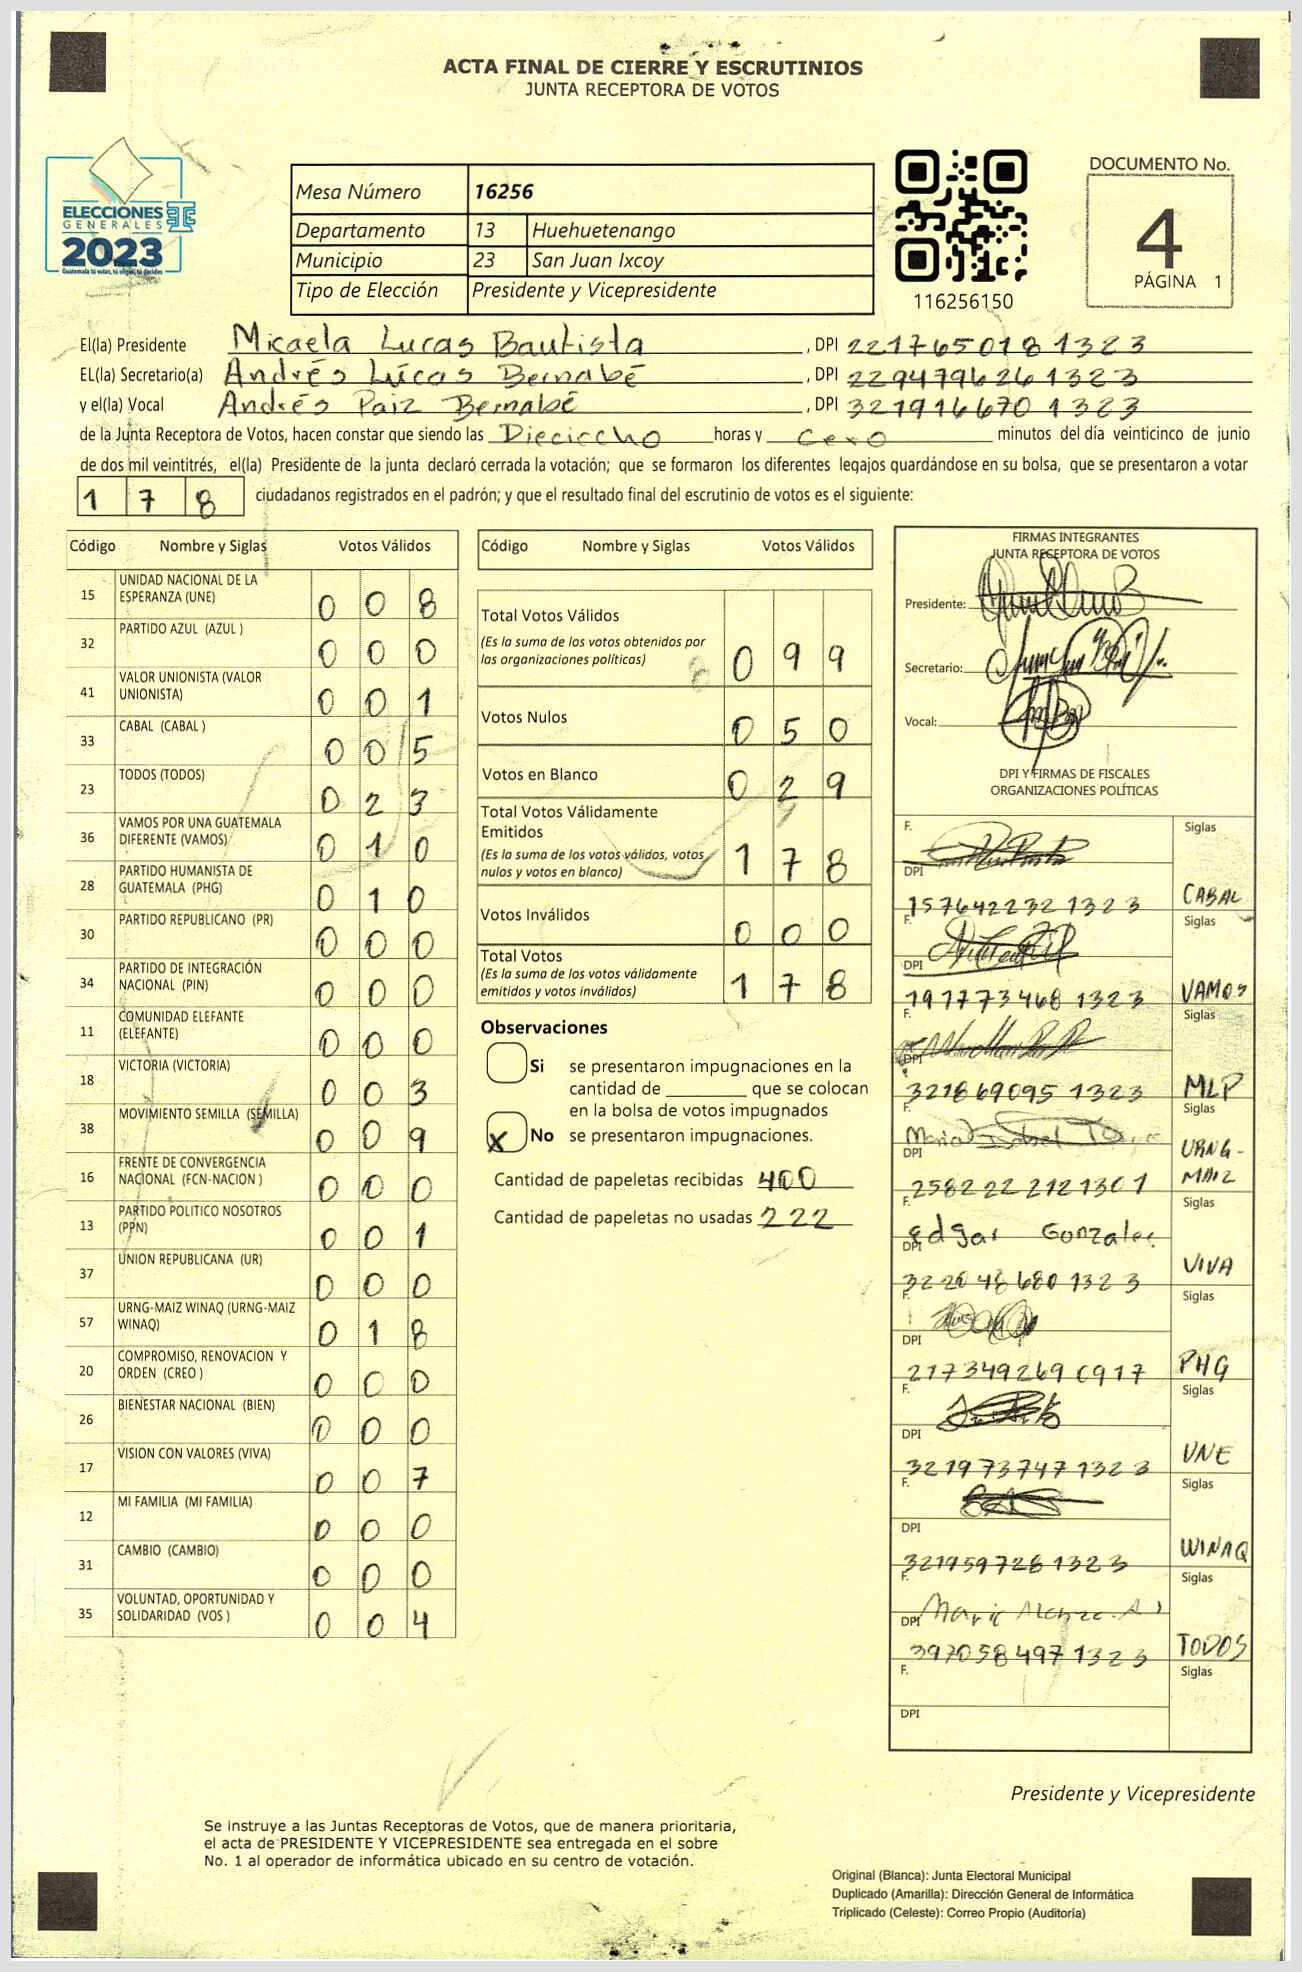 ACTA FINAL DE CIERRE Y ESCRUTINIOS
JUNTA RECEPTORA DE VOTOS
ELECCIONES
GENERALES
2023
Guatemala tú votas, tú eliges, tú decides
Mesa Número 16256
Departamento 13 Huehuetenango
Municipio 23 San Juan Ixcoy
Tipo de Elección Presidente y Vicepresidente
116256150
DOCUMENTO No.
4
PÁGINA 1
El(la) Presidente Micaela Lucas Bautista , DPI 221765018 1323
EL(la) Secretario(a) Andrés Lúcas Bernabé , DPI 229479626 1323
y el(la) Vocal Andrés Paiz Bernabé , DPI 321916670 1323
de la Junta Receptora de Votos, hacen constar que siendo las Dieciccho horas y Cero minutos del día veinticinco de junio
de dos mil veintitrés, el(la) Presidente de la junta declaró cerrada la votación; que se formaron los diferentes legajos guardándose en su bolsa, que se presentaron a votar
1 7 8 ciudadanos registrados en el padrón; y que el resultado final del escrutinio de votos es el siguiente:
Código Nombre y Siglas Votos Válidos
15 UNIDAD NACIONAL DE LA ESPERANZA (UNE) 0 0 8
32 PARTIDO AZUL (AZUL ) 0 0 0
41 VALOR UNIONISTA (VALOR UNIONISTA) 0 0 1
33 CABAL (CABAL ) 0 0 5
23 TODOS (TODOS) 0 2 3
36 VAMOS POR UNA GUATEMALA DIFERENTE (VAMOS) 0 1 0
28 PARTIDO HUMANISTA DE GUATEMALA (PHG) 0 1 0
30 PARTIDO REPUBLICANO (PR) 0 0 0
34 PARTIDO DE INTEGRACIÓN NACIONAL (PIN) 0 0 0
11 COMUNIDAD ELEFANTE (ELEFANTE) 0 0 0
18 VICTORIA (VICTORIA) 0 0 3
38 MOVIMIENTO SEMILLA (SEMILLA) 0 0 9
16 FRENTE DE CONVERGENCIA NACIONAL (FCN-NACION ) 0 0 0
13 PARTIDO POLITICO NOSOTROS (PPN) 0 0 1
37 UNION REPUBLICANA (UR) 0 0 0
57 URNG-MAIZ WINAQ (URNG-MAIZ WINAQ) 0 1 8
20 COMPROMISO, RENOVACION Y ORDEN (CREO ) 0 0 0
26 BIENESTAR NACIONAL (BIEN) 0 0 0
17 VISION CON VALORES (VIVA) 0 0 7
12 MI FAMILIA (MI FAMILIA) 0 0 0
31 CAMBIO (CAMBIO) 0 0 0
35 VOLUNTAD, OPORTUNIDAD Y SOLIDARIDAD (VOS ) 0 0 4
Código Nombre y Siglas Votos Válidos
Total Votos Válidos
(Es la suma de los votos obtenidos por
las organizaciones políticas) 0 9 9
Votos Nulos 0 5 0
Votos en Blanco 0 2 9
Total Votos Válidamente
Emitidos
(Es la suma de los votos válidos, votos
nulos y votos en blanco) 1 7 8
Votos Inválidos 0 0 0
Total Votos
(Es la suma de los votos válidamente
emitidos y votos inválidos) 1 7 8
Observaciones
Si se presentaron impugnaciones en la
cantidad de que se colocan
en la bolsa de votos impugnados
X No se presentaron impugnaciones.
Cantidad de papeletas recibidas 400
Cantidad de papeletas no usadas 222
FIRMAS INTEGRANTES
JUNTA RECEPTORA DE VOTOS
Presidente:
Secretario:
Vocal:
DPI Y FIRMAS DE FISCALES
ORGANIZACIONES POLÍTICAS
F. Siglas
DPI 157642232 1323 CABAL
F. Siglas
DPI 191773468 1323 VAMOS
F. Siglas
DPI 321869095 1323 MLP
F. Maria Isabel Siglas
DPI 2582 22 212 1301 URNG-MAIZ
F. Edgar Gonzalez Siglas
DPI 322048680 1323 VIVA
F. Siglas
DPI 217349269 0917 PHG
F. Siglas
DPI 321973747 1323 UNE
F. Siglas
DPI 321959728 1323 WINAQ
F. Siglas
DPI 397058497 1323 TODOS
F. Siglas
DPI
Presidente y Vicepresidente
Se instruye a las Juntas Receptoras de Votos, que de manera prioritaria,
el acta de PRESIDENTE Y VICEPRESIDENTE sea entregada en el sobre
No. 1 al operador de informática ubicado en su centro de votación.
Original (Blanca): Junta Electoral Municipal
Duplicado (Amarilla): Dirección General de Informática
Triplicado (Celeste): Correo Propio (Auditoría)